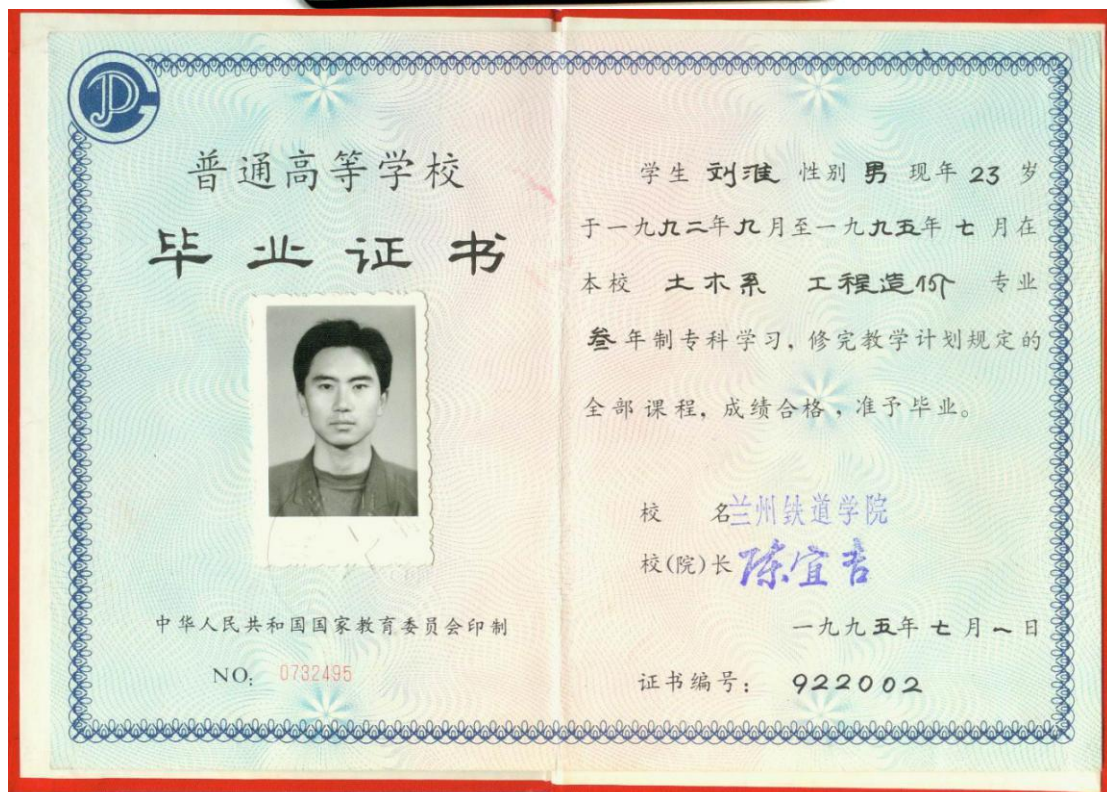 普通高等学校
毕业证书
中华人民共和国国家教育委员会印制
NO: 0732495
学生 刘淮 性别 男 现年 23 岁
于一九九二年九月至一九九五年七月在
本校 土木系 工程造价 专业
叁年制专科学习,修完教学计划规定的
全部课程,成绩合格,准予毕业。
校 名兰州铁道学院
校(院)长 陈宜吉
一九九五年七月一日
证书编号: 922002